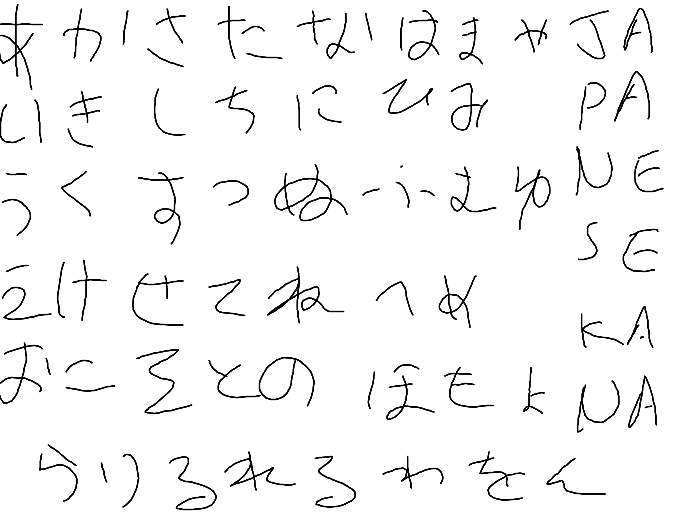 あかさたなはまや JA
いきしちにひみ PA
うくすつぬふむゆ NE
えけせてねへめ SE
おこそとのほもよ KA
らりるれるわをん NA